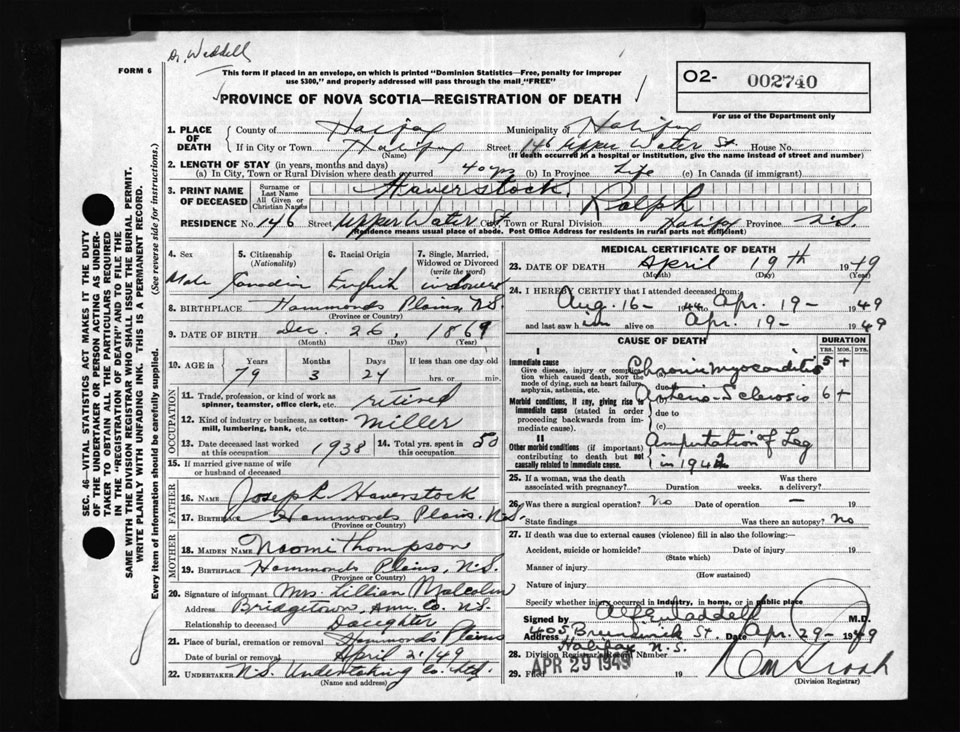 Dr. Weddell
FORM 6
This form if placed in an envelope, on which is printed "Dominion Statistics—Free, penalty for improper
use $300," and properly addressed will pass through the mail "FREE"
O2- 002740
For use of the Department only
PROVINCE OF NOVA SCOTIA—REGISTRATION OF DEATH
SEC. 46—VITAL STATISTICS ACT MAKES IT THE DUTY
OF THE UNDERTAKER OR PERSON ACTING AS UNDER-
TAKER TO OBTAIN ALL THE PARTICULARS REQUIRED
IN THE "REGISTRATION OF DEATH" AND TO FILE THE
SAME WITH THE DIVISION REGISTRAR WHO SHALL ISSUE THE BURIAL PERMIT.
WRITE PLAINLY WITH UNFADING INK. THIS IS A PERMANENT RECORD.
Every item of information should be carefully supplied. (See reverse side for instructions.)
1. PLACE OF DEATH County of Halifax Municipality of Halifax
If in City or Town Halifax (Name) Street 146 Upper Water St. House No.
(If death occurred in a hospital or institution, give the name instead of street and number)
2. LENGTH OF STAY (in years, months and days)
(a) In City, Town or Rural Division where death occurred 40 yrs (b) In Province Life (c) In Canada (if immigrant)
3. PRINT NAME OF DECEASED Surname or Last Name Haverstock
All Given or Christian Names Ralph
RESIDENCE No. 146 Street Upper Water St. City, Town or Rural Division Halifax Province N.S.
(Residence means usual place of abode. Post Office Address for residents in rural parts not sufficient)
4. Sex Male
5. Citizenship (Nationality) Canadian
6. Racial Origin English
7. Single, Married, Widowed or Divorced (write the word) widower
8. BIRTHPLACE Hammonds Plains, N.S.
(Province or Country)
9. DATE OF BIRTH Dec. 26, 1869
(Month) (Day) (Year)
10. AGE in Years 79 Months 3 Days 24 If less than one day old
hrs. or min.
OCCUPATION
11. Trade, profession, or kind of work as
spinner, teamster, office clerk, etc. retired
12. Kind of industry or business, as cotton-
mill, lumbering, bank, etc. Miller
13. Date deceased last worked
at this occupation 1938
14. Total yrs. spent in
this occupation 50
15. If married give name of wife
or husband of deceased
FATHER
16. NAME Joseph Haverstock
17. BIRTHPLACE Hammonds Plains, N.S.
(Province or Country)
MOTHER
18. MAIDEN NAME Naomi Thompson
19. BIRTHPLACE Hammonds Plains, N.S.
(Province or Country)
20. Signature of informant Mrs. Lillian Malcolm
Address Bridgetown, Ann. Co. N.S.
Relationship to deceased Daughter
21. Place of burial, cremation or removal Hammonds Plains
Date of burial or removal April 21/49
22. UNDERTAKER N.S. Undertaking Co. Ltd.
(Name and address)
MEDICAL CERTIFICATE OF DEATH
23. DATE OF DEATH April 19th 1949
(Month) (Day) (Year)
24. I HEREBY CERTIFY that I attended deceased from
Aug. 16- 1944 to Apr. 19- 1949
and last saw him alive on Apr. 19- 1949
CAUSE OF DEATH DURATION
YRS. MOS. DYS.
I
Immediate cause (a) Chronic myocarditis 5+
Give disease, injury or compli-
cation which caused death, NOT the
mode of dying, such as heart failure,
asphyxia, asthenia, etc.
due to
Morbid conditions, if any, giving rise to
immediate cause (stated in order
proceeding backwards from im-
mediate cause).
Arterio-Sclerosis 6+
due to
(c)
II
Other morbid conditions (if important)
contributing to death but not
causally related to immediate cause.
Amputation of Leg
in 1942
25. If a woman, was the death
associated with pregnancy? Duration weeks. Was there
a delivery?
26. Was there a surgical operation? No Date of operation — 19
State findings Was there an autopsy? No
27. If death was due to external causes (violence) fill in also the following:—
Accident, suicide or homicide? Date of injury 19
(State which)
Manner of injury
(How sustained)
Nature of injury
Specify whether injury occurred in industry, in home, or in public place
Signed by M.D.
Address 405 Brunswick St. Date Apr. 29- 1949
Halifax N.S.
28. Division Registrar's Record Number
29. Filed APR 29 1949 19
(Division Registrar)